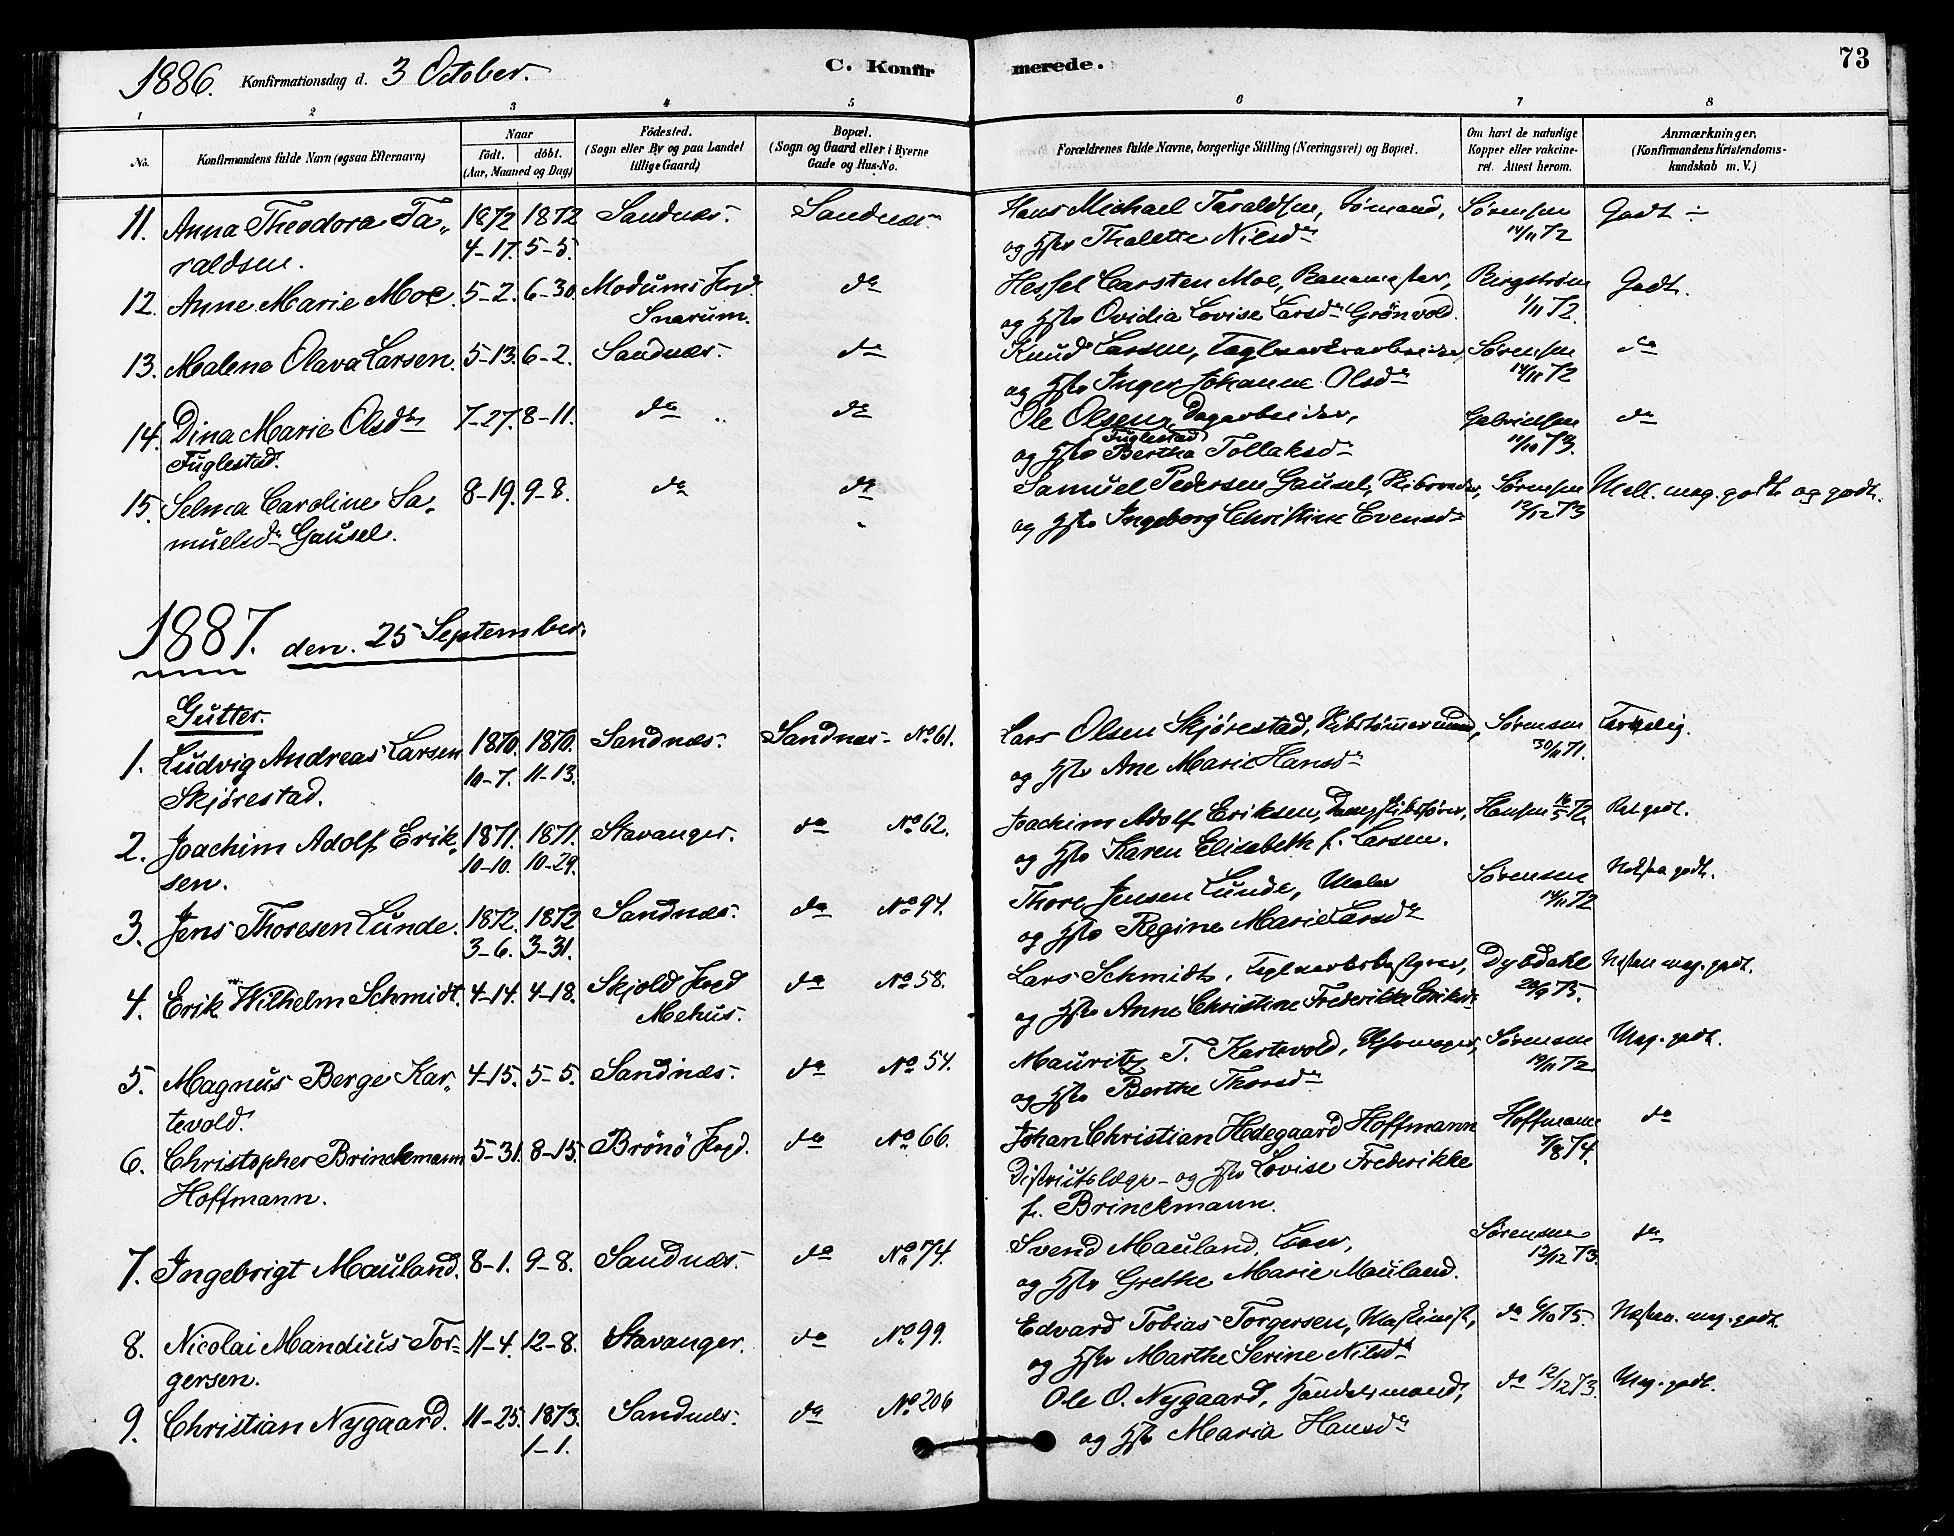 1886. Konfirmationsdag d. 3 October.
C. Konfirmerede.
73
1 2 3 4 5 6 7 8
No.
Konfirmandens fulde Navn (ogsaa Efternavn)
Naar
födt. döbt.
(Aar, Maaned og Dag)
Födested.
(Sogn eller By og paa Landet
tillige Gaard)
Bopæl.
(Sogn og Gaard eller i Byerne
Gade og Hus-No.
Forældrenes fulde Navne, borgerlige Stilling (Næringsvei) og Bopæl.
Om havt de naturlige
Kopper eller vakcine-
ret. Attest herom.
Anmærkninger.
(Konfirmandens Kristendoms-
kundskab m. V.)
11. Anna Theodora Ta- 1872 1872 Sandnæs. Sandnæs. Hans Michael Taraldsen, Sömand, Sørensen Godt
raldsen. 4-17. 5-5. og Hstr Thalette Nilsdr 14/11 72
12. Anne Marie Moe. 5-2. 6-30. Modums Prgd. do Hessel Carsten Moe, Banemester, Bergstrøm Godt.
Snarum. og Hstr Ovidia Lovise Larsdr Grönvold. 1/11 72.
13. Malene Olava Larsen. 5-13. 6-2. Sandnæs. do Knud Larsen, Teglværksarbeider, Sørensen do
og Hstr Inger Johanne Olsdr 14/11 72
14. Dina Marie Olsdtr 7-27. 8-11. do do Ole Olsen, Dagarbeider, Gabrielsen do
Fuglestad. Fuglestad og Hstr Bertha Tollaksdr 14/10 73.
15. Selma Caroline Sa- 8-19. 9-8. do do Samuel Pedersen Gausel, Skibsreder, Sørensen Mell. meg. godt og godt.
muelsdr Gausel. og Hstr Ingeborg Christine Evensdr 12/12 73
1887. den. 25 September.
Gutter.
1. Ludvig Andreas Larsen 1870. 1870. Sandnæs. Sandnæs- No 61. Lars Olsen Skjørestad, Skibstømmermand, Sørensen Tarvelig.
Skjørestad. 10-7. 11-13. og Hstr Ane Marie Hansdr 30/11 71.
2. Joachim Adolf Erik- 1871. 1871. Stavanger. do No 62. Joachim Adolf Eriksen, Dampskibsfører, Hansen 16/5 72. Ret godt.
sen. 10-10. 10-29. og Hstr Karen Elisabeth f. Larsen.
3. Jens Thoresen Lunde. 1872. 1872 Sandnæs. do No 94. Thore Jensen Lunde, Maler Sørensen Næsten godt.
3-6. 3-31. og Hstr Regine Marie Larsdr 14/11 72
4. Erik Wilhelm Schmidt. 4-14. 4-18. Skjold Prgd do No 58. Lars Schmidt, Teglværksbestyrer, Dybdahl Næsten meg. godt.
Mehus. og Hstr Anne Christine Frederikke Eriksdr 20/9 75.
5. Magnus Berge Kar- 4-15. 5-5. Sandnæs. do No 54. Mauritz T. Kartevold, Sørensen Meg. godt.
tevold. og Hstr Berthe Thorsdr 19/11 72
6. Christopher Brinckmann 5-31. 8-15. Brönö Prgd. do No 66. Johan Christian Hedegaard Hoffmann Hoffmann do
Hoffmann. Distriktslæge- og Hstr Lovise Frederikke 7/8 74.
f. Brinckmann.
7. Ingebrigt Mauland. 8-1. 9-8. Sandnæs. do No 74. Svend Mauland, Sørensen do
og Hstr Grethe Marie Mauland. 12/12 73.
8. Nicolai Mandius Tor- 11-4. 12-8. Stavanger. do No 99. Edvard Tobias Torgersen, Maskinist, do 6/10 75. Næsten meg. godt.
gersen. og Hstr Marthe Serine Nilsdr
9. Christian Nygaard. 11-25. 1873. Sandnæs. do No 206 Ole O. Nygaard, Handelsmand, do 12/12 73. Meg. godt.
1-1. og Hstr Maria Hansdr